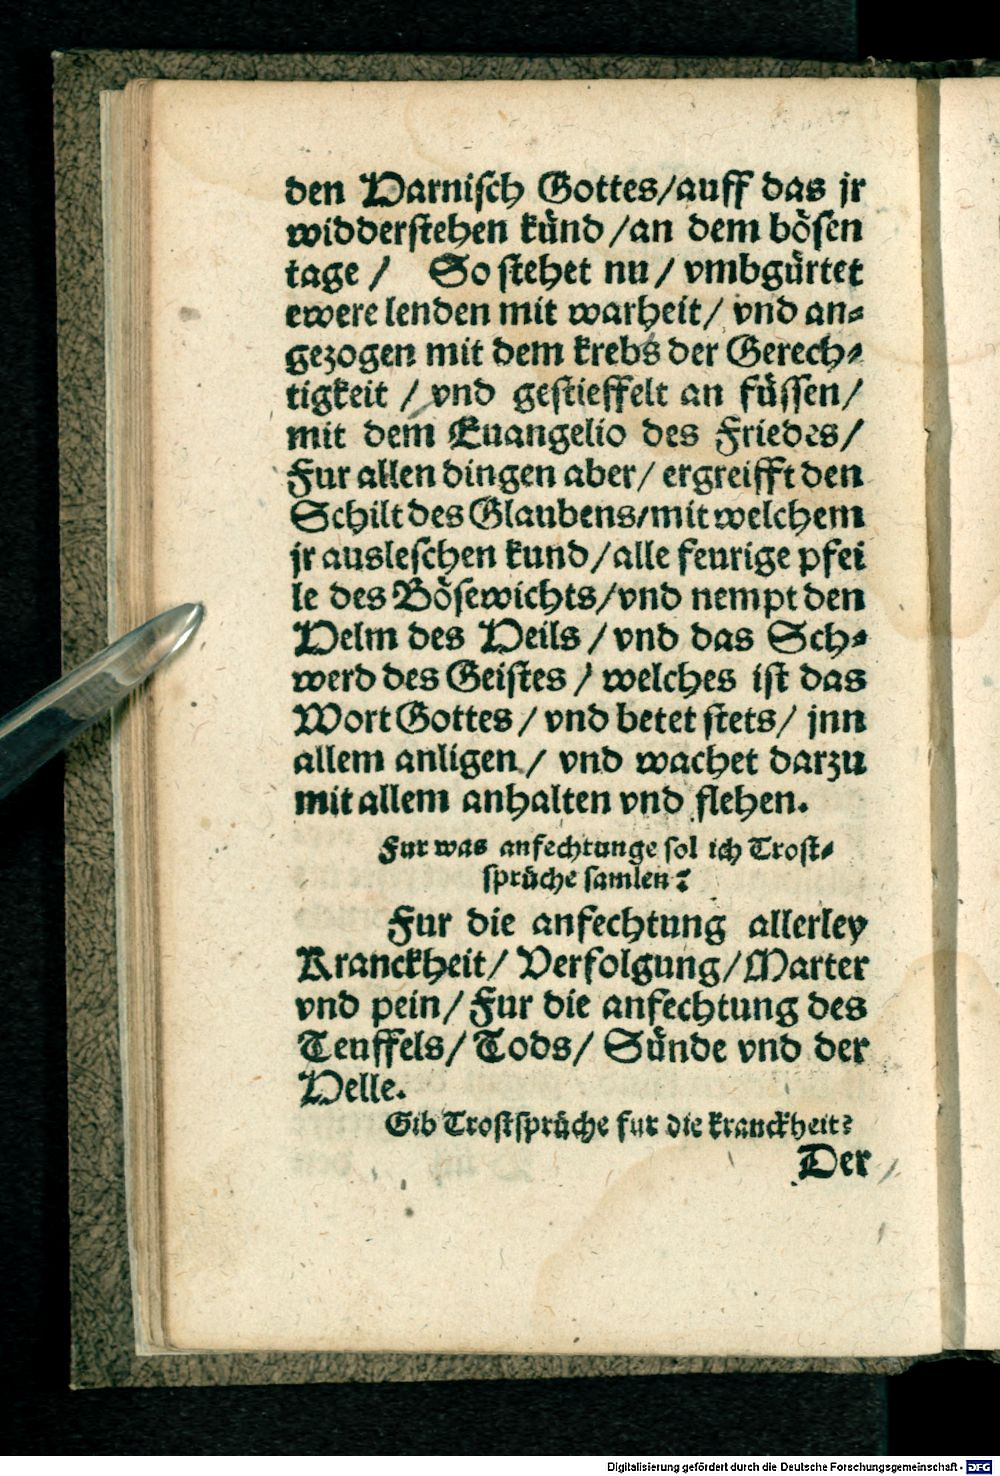 den Harnisch Gottes/auff das jr
widderstehen künd/an dem bösen
tage/ So stehet nu/ vmbgürtet
ewere lenden mit warheit/ vnd an⸗
gezogen mit dem krebs der Gerech⸗
tigkeit/ vnd gestieffelt an füssen/
mit dem Euangelio des Friedes/
Fur allen dingen aber/ ergreifft den
Schilt des Glaubens/mit welchem
jr ausleschen kund/alle feurige pfei
le des Bösewichts/vnd nempt den
Helm des Heils/vnd das Sch⸗
werd des Geistes/ welches ist das
Wort Gottes/ vnd betet stets/ jnn
allem anligen/ vnd wachet darzu
mit allem anhalten vnd flehen.
Fur was anfechtunge sol ich Trost⸗
sprüche samlen?
Fur die anfechtung allerley
Kranckheit/ Verfolgung/Marter
vnd pein/ Fur die anfechtung des
Teuffels/ Tods/ Sünde vnd der
Helle.
Gib Trostsprüche fur die kranckheit?
Der
Digitalisierung gefördert durch die Deutsche Forschungsgemeinschaft - DFG